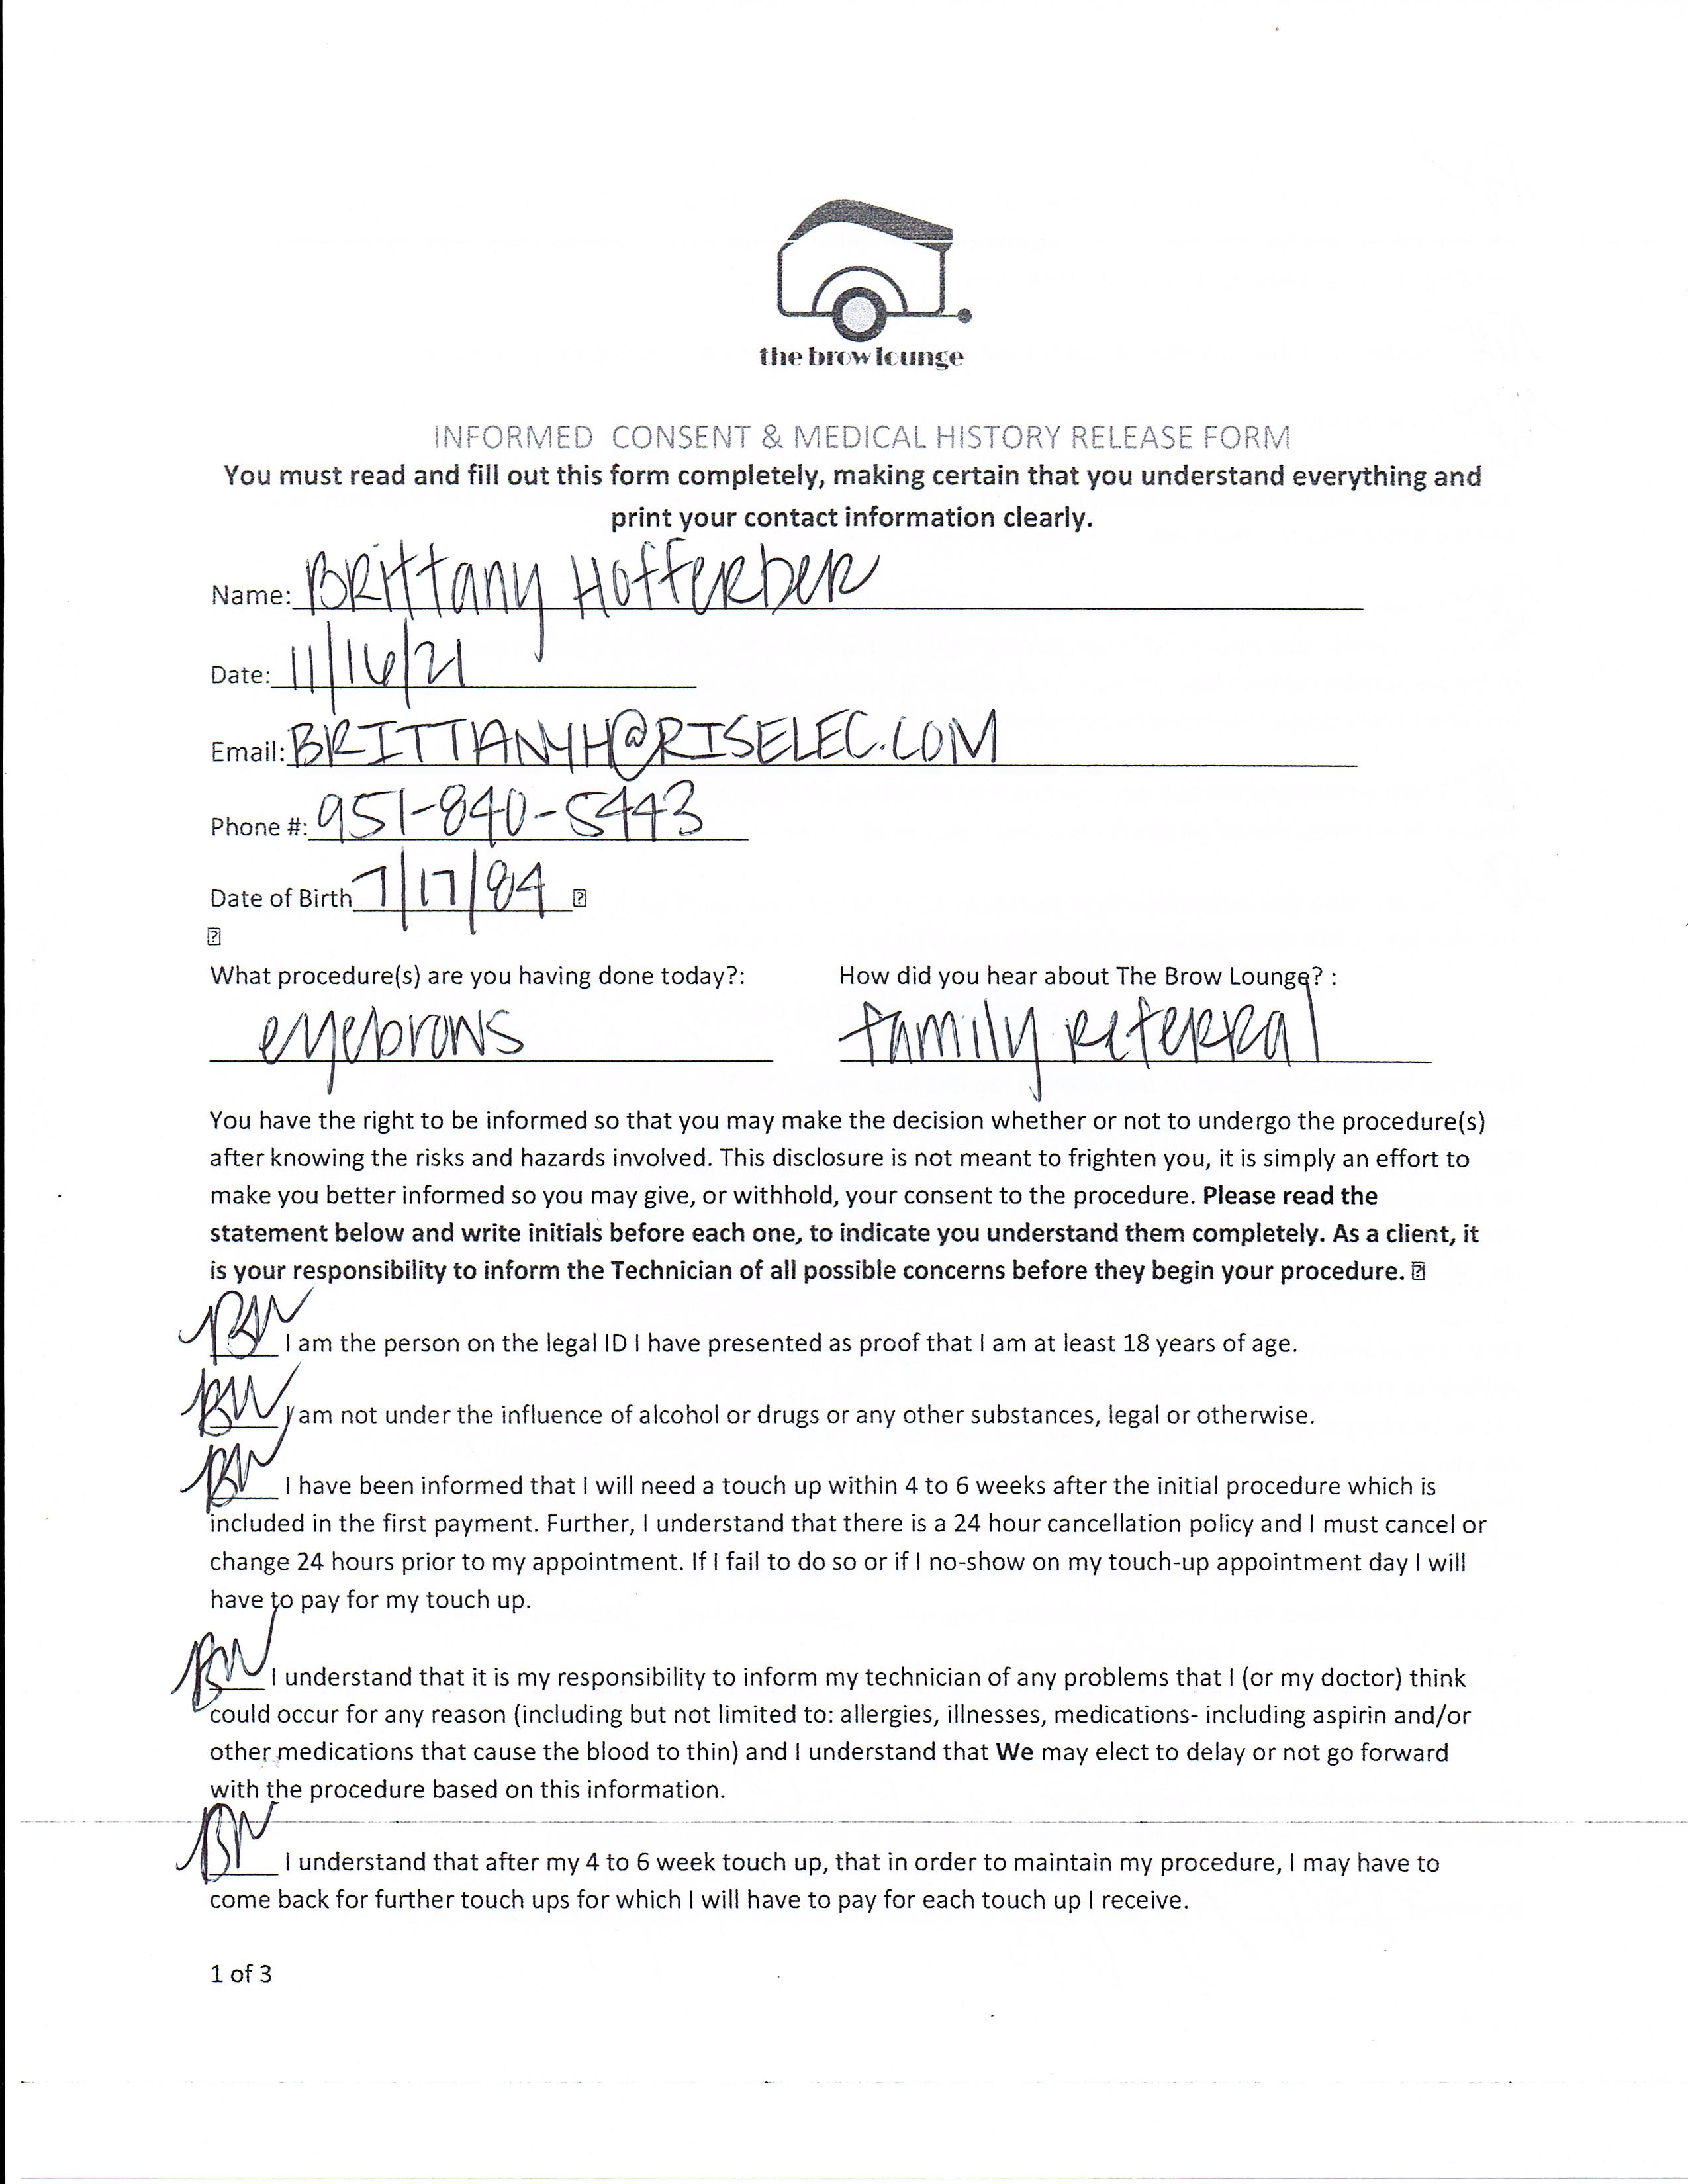 the brow lounge
INFORMED CONSENT & MEDICAL HISTORY RELEASE FORM
You must read and fill out this form completely, making certain that you understand everything and
print your contact information clearly.
Name: Brittany Hofferber
Date: 11/16/21
Email: BRITTANYH@RISELEC.COM
Phone #: 951-840-5443
Date of Birth 7/17/84
What procedure(s) are you having done today?: How did you hear about The Brow Lounge? :
eyebrows family referral
You have the right to be informed so that you may make the decision whether or not to undergo the procedure(s)
after knowing the risks and hazards involved. This disclosure is not meant to frighten you, it is simply an effort to
make you better informed so you may give, or withhold, your consent to the procedure. Please read the
statement below and write initials before each one, to indicate you understand them completely. As a client, it
is your responsibility to inform the Technician of all possible concerns before they begin your procedure.
I am the person on the legal ID I have presented as proof that I am at least 18 years of age.
I am not under the influence of alcohol or drugs or any other substances, legal or otherwise.
I have been informed that I will need a touch up within 4 to 6 weeks after the initial procedure which is
included in the first payment. Further, I understand that there is a 24 hour cancellation policy and I must cancel or
change 24 hours prior to my appointment. If I fail to do so or if I no-show on my touch-up appointment day I will
have to pay for my touch up.
I understand that it is my responsibility to inform my technician of any problems that I (or my doctor) think
could occur for any reason (including but not limited to: allergies, illnesses, medications- including aspirin and/or
other medications that cause the blood to thin) and I understand that We may elect to delay or not go forward
with the procedure based on this information.
I understand that after my 4 to 6 week touch up, that in order to maintain my procedure, I may have to
come back for further touch ups for which I will have to pay for each touch up I receive.
1 of 3